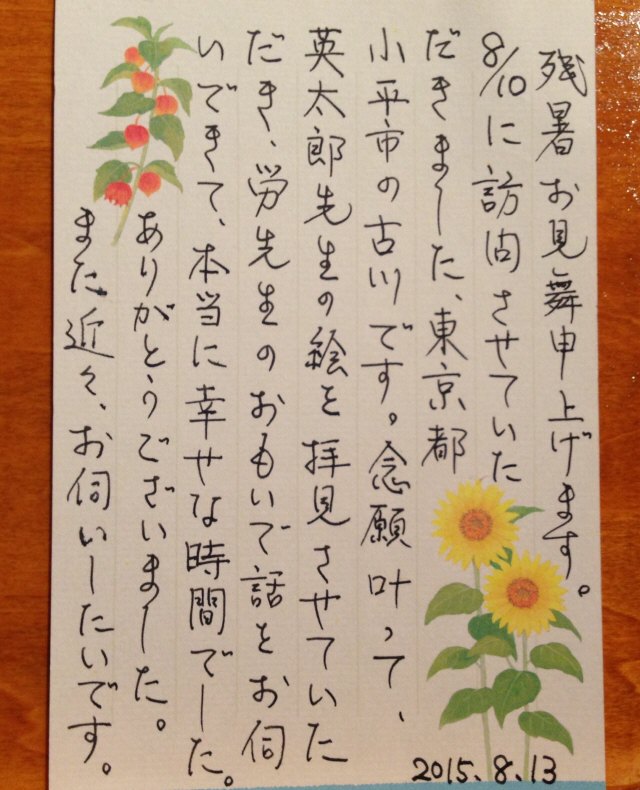 残暑お見舞申上げます。
8/10に訪問させていた
だきました、東京都
小平市の古川です。念願叶って、
英太郎先生の絵を拝見させていた
だき、労先生のおもいで話をお伺
いできて、本当に幸せな時間でした。
ありがとうございました。
また近々、お伺いしたいです。
2015.8.13